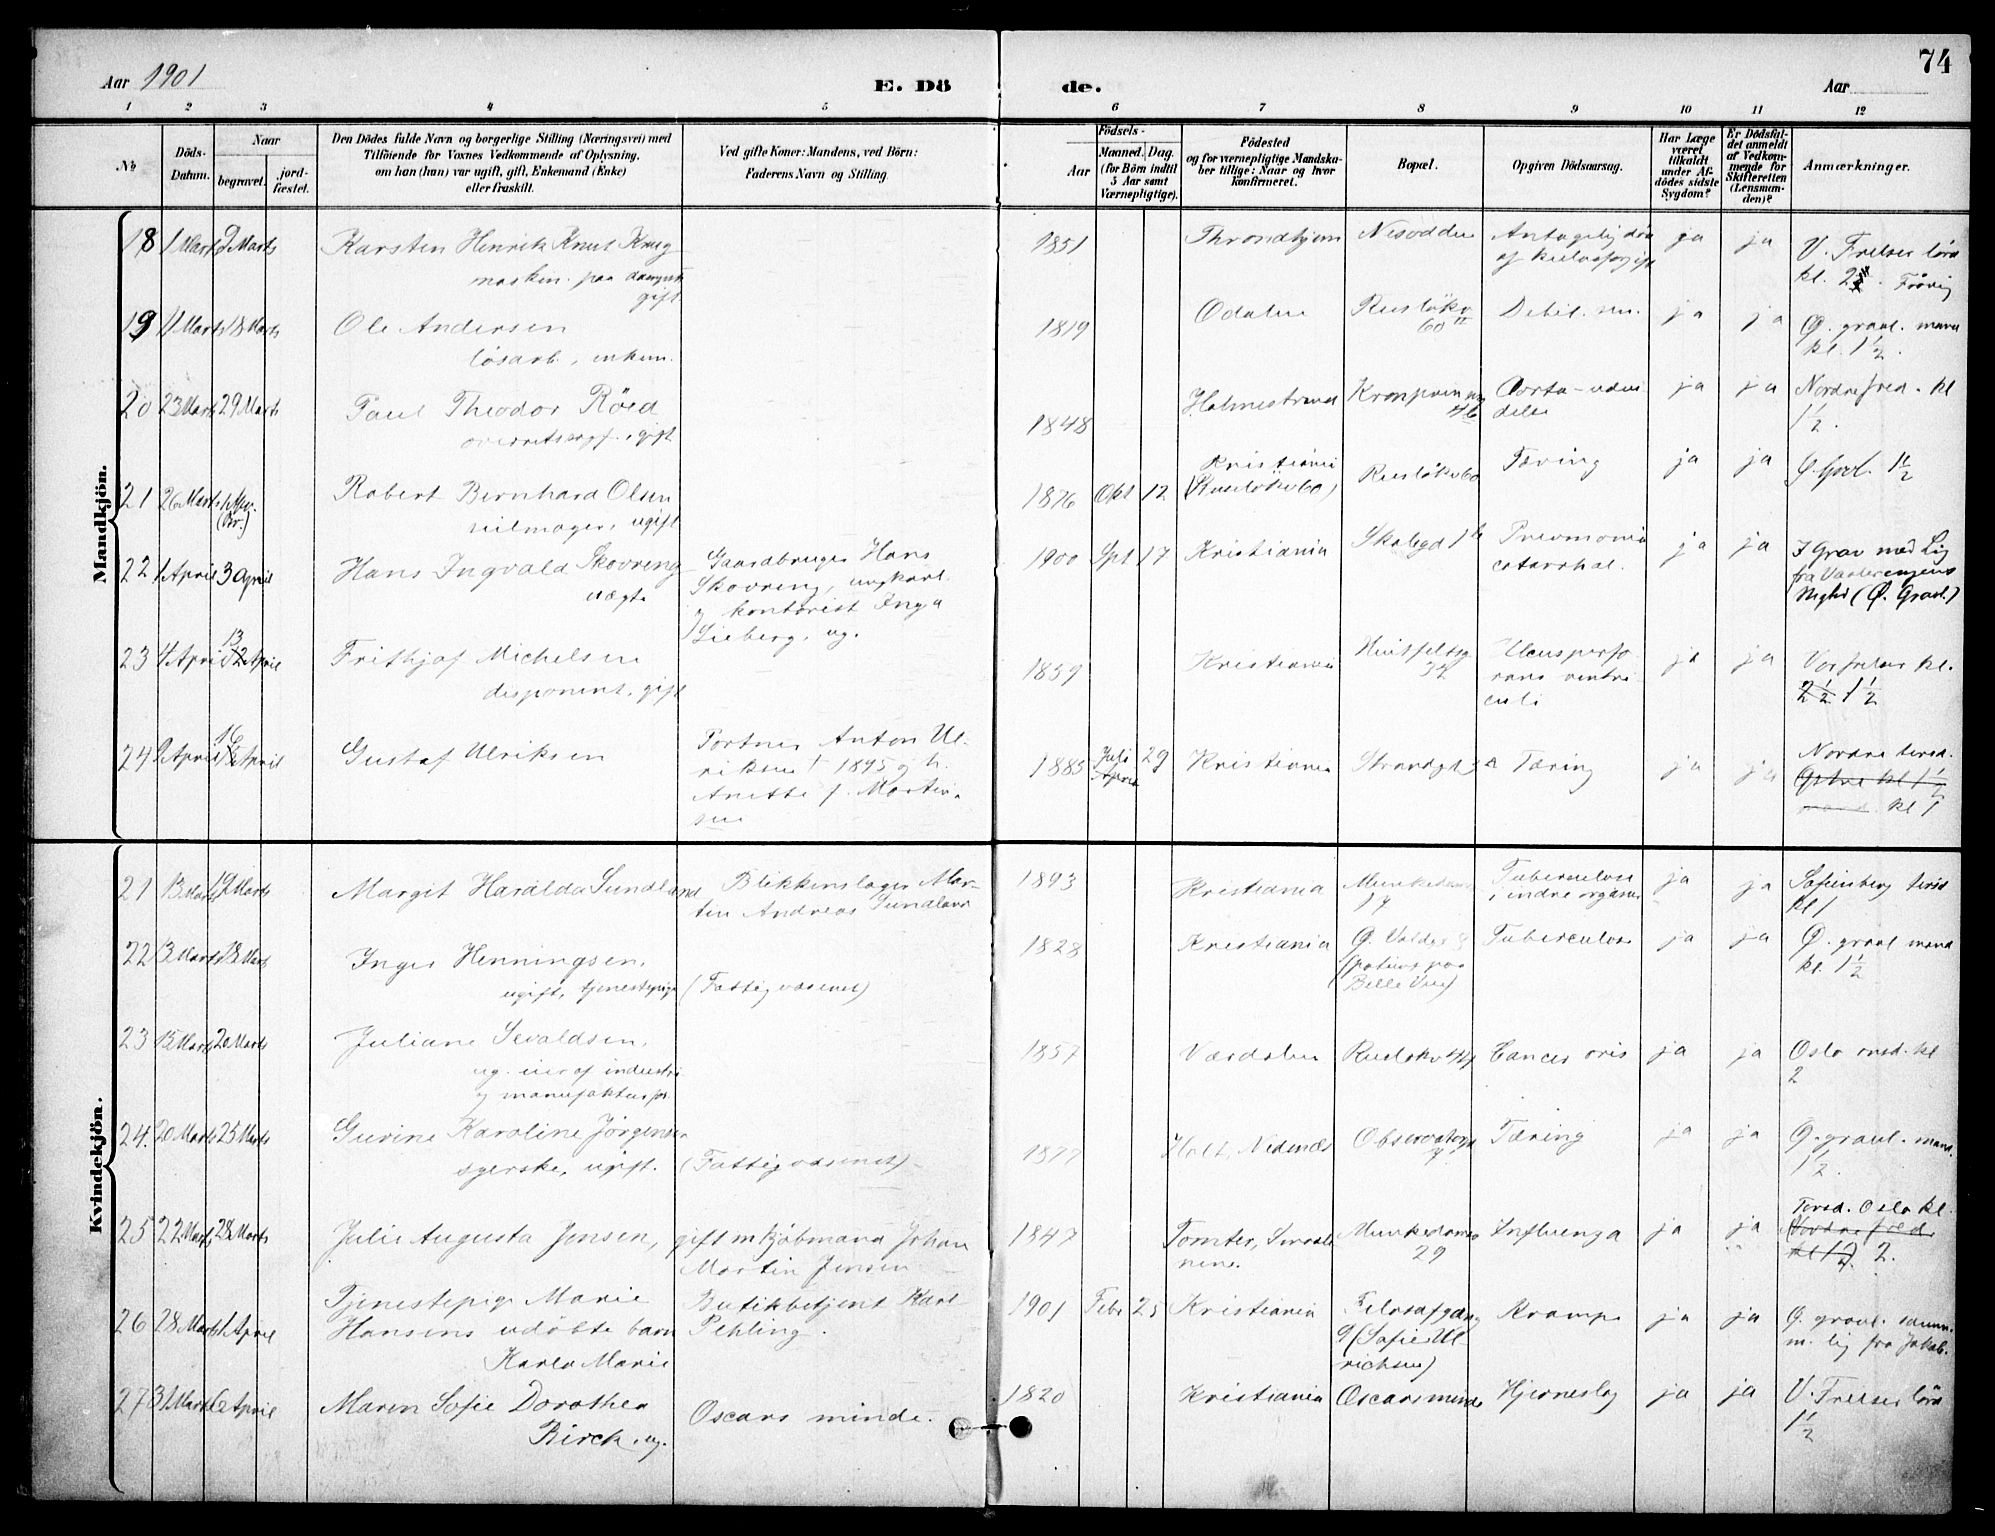 74
Aar 1901
E. Dö
de.
Aar
1 2 3 4 5 6 7 8 9 10 11 12
No
Döds-Datum.
Naar
begravet.
jord-fæstet.
Den Dödes fulde Navn og borgerlige Stilling (Næringsvei) med
Tilföiende for Voxnes Vedkommende af Oplysning,
om han (hun) var ugift, gift, Enkemand (Enke)
eller fraskilt.
Ved gifte Koner: Mandens, ved Börn:
Faderens Navn og Stilling.
Födsels-
Aar
Maaned. Dag.
(for Börn indtil
5 Aar samt
Værnepligtige).
Födested
og for værnepligtige Mandska-
ber tillige: Naar og hvor
konfirmeret.
Bopæl.
Opgiven Dödsaarsag.
Har Læge
været
tilkaldt
under Af-
dödes sidste
Sygdom?
Er Dödsfal-
det anmeldt
af Vedkom-
mende for
Skifteretten
(Lensman-
den)?
Anmærkninger.
Mandkjön.
18 1 Marts 9 Marts Karsten Henrik Knut Krug 1851 Throndhjem Nesodden Antagelig død ja ja V. Frelser lørd
maskin. paa dampsk. gift
af kulosforgift
kl. 2
19 11 Marts 18 Marts Ole Andersen 1819 Odalen Rusløkv 60 II Debil. sen. ja ja Ø. gravl. mand
løsarb., enkem.
kl. 1 1/2.
20 23 Marts 29 Marts Paul Theodor Röed 1848 Holmestrand Kronprinsensg ja ja Nordre fred. kl
gift
1 1/2.
21 26 Marts Robert Bernhard Olsen 1876 Okt 12 Kristiania (Rusløkv 60) Rusløkv 60 Tæring ja ja Ø. Gravl. 1 1/2
ugift
22 1 April 3 April Hans Ingvald Skovreng 1900 Spt 17 Kristiania Pneumonia ja ja I Grav med Lig
uægte
Gaardbruger Hans
Skovreng, ungkarl
og kontorist Inga
Lieberg, ug.
catarrhal.
(Ø. Gravl.)
23 4 April 13 April Frithjof Michelsen 1859 Kristiania Huitfeltsg 32 Ulcus perfo- ja ja Vor frelser kl.
disponent, gift
rans ventri-
culi
2 1/2 1 1/2
24 9 April 16 April Gustaf Ulriksen 1885 Juli 29 Kristiania Tæring ja ja Nordre tirsd.
April
Portner Anton Ul-
riksen † 1895 og h.
Anette f. Martin-
sen
Østre kl 1 1/2
mand. kl 1
Kvindekjön.
21 13 Marts 19 Marts Margit Haralda Sundland 1893 Kristiania Tuberculose ja ja Sofienberg tirsd
Blikkenslager Mar-
tin Andreas Sundland
i indre organer
kl 1
22 13 Marts 18 Marts Inger Henningsen, 1828 Kristiania Tuberculose ja ja Ø. gravl mand
ugift, tjenestepige (Fattigvæsenet)
(patient paa
Belle Vue)
kl. 1 1/2
23 15 Marts 20 Marts Juliane Sevaldsen, 1857 Værdalen Cancer oris ja ja Oslo onsd. kl
ug. eier af industri
og manufakturfor.
2
24. 20 Marts 25 Marts Gurine Karoline Jørgensen 1877 Holt, Nedenæs Observatoryg Tæring ja ja Ø. gravl. mand.
syerske, ugift. (Fattigvæsenet)
1 1/2.
25 22 Marts 28 Marts Julie Augusta Jensen, gift m kjøbmand Johan 1847 Tomter, Munkedamsv Influenza ja ja Torsd. Oslo kl.
Martin Jensen
29
Nordre fred
2.
26 28 Marts 1 April Tjenestepige Marie 1901 Febr 25 Kristiania Filosofgang Krampe ja ja Ø. gravl. samm.
Hansens udöbte barn
Karla Marie
Butikbetjent Karl
Pehling.
9 (Sofie Ul-
richsen)
m. lig fra Jakob.
27 31 Marts 6 April Maren Sofie Dorothea 1820 Kristiania Oscars minde Hjerneslag ja ja V. Frelser lørd
Birck, ug.
Oscars minde.
1 1/2